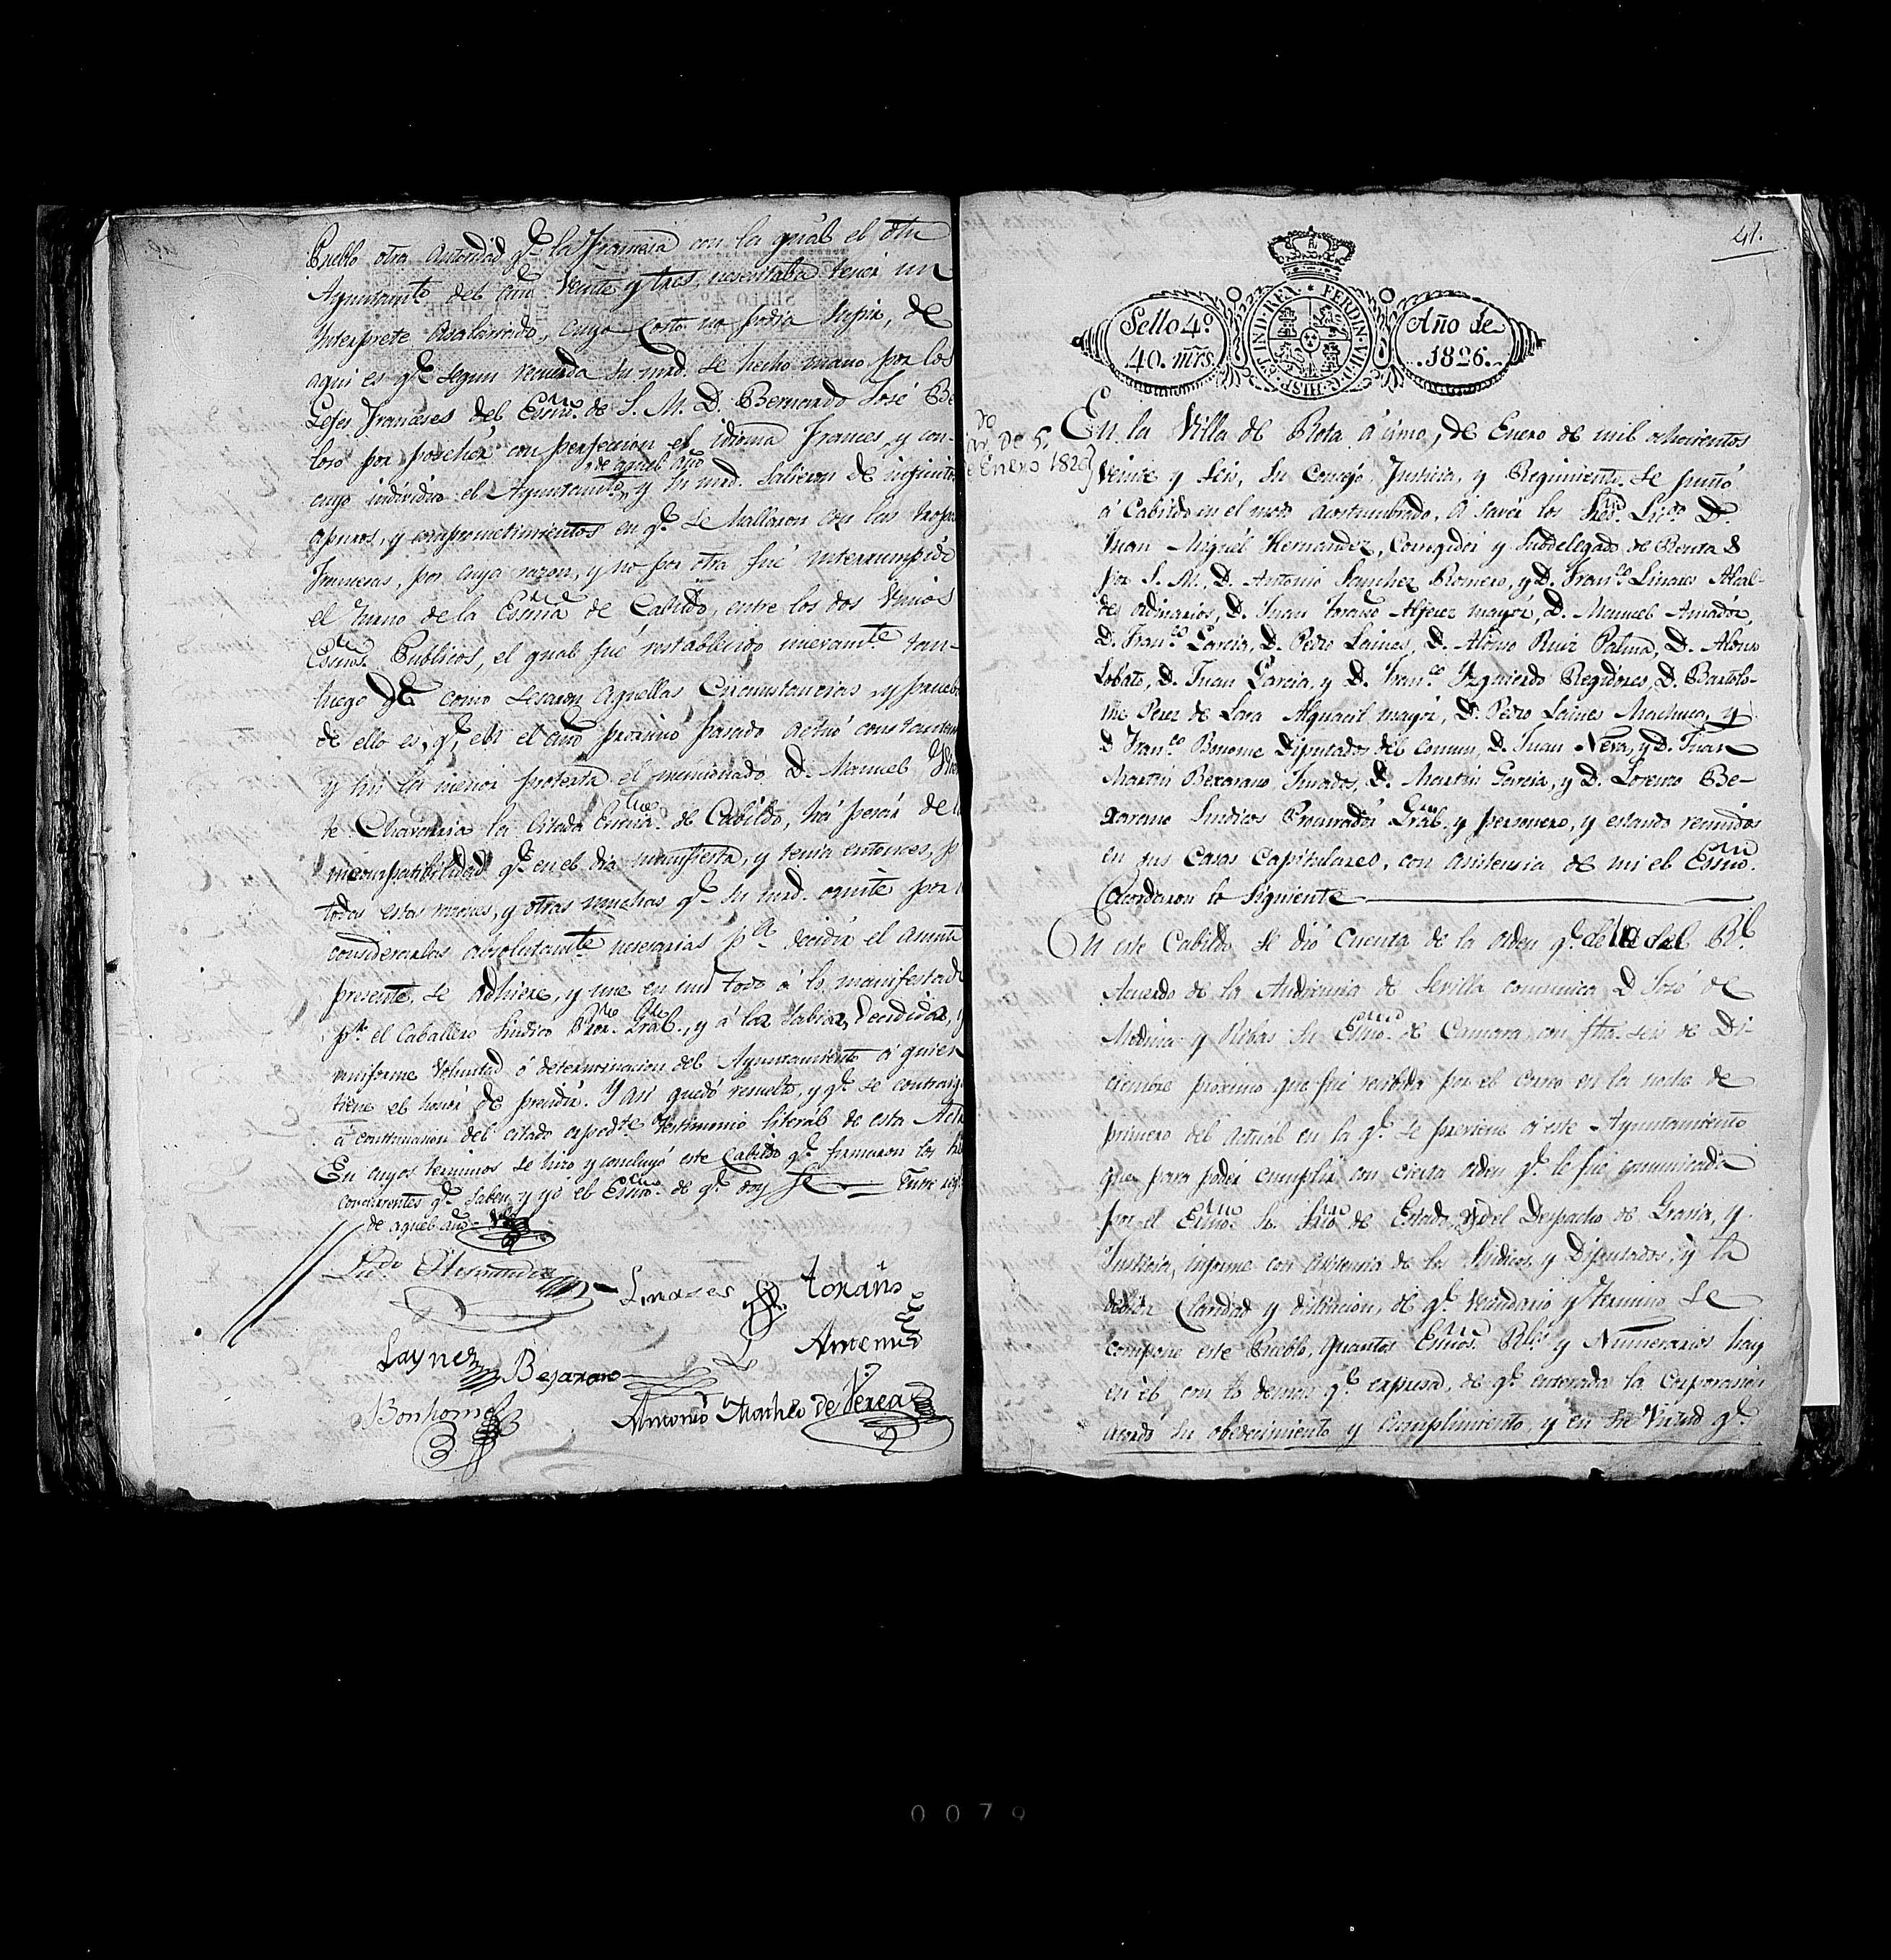 Pueblo otra autoridad q.e la Francesa con la qual el otro
Ayuntam.to del año veinte y tres, necesitaba tener un
Interprete asalariado, cuyo costo no podia suplir, de
aqui es q.e segun recuerda su mrd. se hecho mano por los
Gefes Franceses del Essno. de S. M. D. Bernardo José Be
loso por poseher con perfeccion el idioma frances, y con
de aquel año
cuyo individuo el Ayuntam.to y su mrd. salieron de infinitos
apuros, y comprometimientos en q.e se hallaron con las tropas
francesas, por cuya razon, y no por otra fué interrumpido
el turno de la Essnia de Cabildo, entre los dos unicos
Essnos. Publicos, el qual fué restablecido nuevam.te tan
luego q.e como sesaron aquellas circunstancias, y prueba
de ello es, q.e en el año proximo pasado actuó constantem
y sin la menor protesta el mencionado D. Manuel
te Chavarria la citada Essnia. de Cabildo, há pesar de
incompatibilidad q.e en el dia manifiesta, y tenia entonces, p
todas estas razones, y otras muchas q.e su mrd. omite por
considerarlas absolutam.te necesarias p.a decidir el asunto
presente, se adhiere, y une en un todo á lo manifestado
p.r el Caballero Sindico Pror. Gral., y á la sabia, decidida, y
uniforme voluntad ó determinacion del Ayuntamiento á quien
tiene el honór de presidir. Y asi quedó resuelto, y q.e se contraiga
á continuacion del citado exped.te testimonio literál de esta Acta
En cuyos terminos se hizo y concluyó este Cabildo q.e firmaron los
concurrentes q.e saben, y yó el Essno. de q.e doy fe — Entre reng
de aquel año
Licdo Hernandez
Linares toraño
Laynez Bejarano
Antemi
Bonhome
Antonio Matheo de Perea
41.
FERDIN. VII. D. G. HISP. ET IND. REX.
Sello 4º Año de
40. mrs 1826.
do
de 5.
Enero 1826
En la Villa de Rota á cinco, de Enero de mil ochocientos
veinte y seis, su Concejo Justicia, y Regimiento se juntó
á Cabildo en el modo acostumbrado, á savér los Sres. Licdo D.
Juan Miguél Hernandez, Corregidor y Subdelegado de Rentas
por S. M., D. Antonio Sanchez Romero, y D. Fran.co Linares Alcal-
des ordinarios, D. Juan Toraño Alferez mayór, D. Manuel Amadór,
D. Fran.co Garcia, D. Pedro Laines, D. Alonso Ruiz Palma, D. Alonso
Lobato, D. Juan Garcia, y D. Fran.co Yzquierdo Regidores, D. Bartolo-
me Perez de Lara Alguacil mayór, D. Pedro Laines Machuca, y
D. Fran.co Bonome Diputados del Comun, D. Juan Neva, y D. Juan
Martin Bexarano Jurados, D. Martin Garcia, y D. Lorenzo Be-
xarano Sindicos Procuradór Gral. y personero, y estando reunidos
en sus Casas Capitulares, con asistencia de mi el Essno.
acordaron lo siguiente
En este Cabildo se dió cuenta de la orden q.e de la del Rl.
Acuerdo de la Audiencia de Sevilla comunica D. José de
Medina y Ribas su Essno. de Camara con fha. seis de Di-
ciembre proximo que fué recibida por el correo en la noche de
primero del actuál en la q.e se previene á este Ayuntamiento
que para poder cumplir con cierta orden q.e le fué comunicada
por el Exmo. Sr. Srio de Estado y del Despacho de Gracia, y
Justicia, informe con asistencia de los Sindicos, y Diputados, y la
debida claridad y distincion, de q.e vecindario y termino se
compone este Pueblo, quantos Essnos. Rls. y Numerarios hay
en él con lo demas q.e expresa, de q.e enterada la Corporacion
acordó su obedecimiento y cumplimiento, y en su virtud q.e
0079